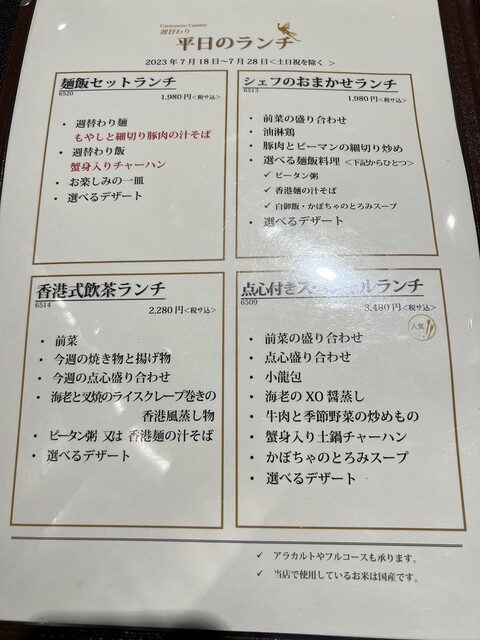 Cantonese Cuisine
週替わり
平日のランチ
2023年7月18日～7月28日<土日祝を除く >
麺飯セットランチ
6520
1,980円<税サ込>
• 週替わり麺
もやしと細切り豚肉の汁そば
• 週替わり飯
蟹身入りチャーハン
• お楽しみの一皿
• 選べるデザート
シェフのおまかせランチ
6513
1,980円<税サ込>
• 前菜の盛り合わせ
• 油淋鶏
• 豚肉とピーマンの細切り炒め
• 選べる麺飯料理 <下記からひとつ>
✓ ピータン粥
✓ 香港麺の汁そば
✓ 白御飯・かぼちゃのとろみスープ
• 選べるデザート
香港式飲茶ランチ
6514
2,280円<税サ込>
• 前菜
• 今週の焼き物と揚げ物
• 今週の点心盛り合わせ
• 海老と叉焼のライスクレープ巻きの
香港風蒸し物
• ピータン粥 又は 香港麺の汁そば
• 選べるデザート
点心付きスペシャルランチ
6509
3,480円<税サ込>
人気
• 前菜の盛り合わせ
• 点心盛り合わせ
• 小龍包
• 海老のXO醤蒸し
• 牛肉と季節野菜の炒めもの
• 蟹身入り土鍋チャーハン
• かぼちゃのとろみスープ
• 選べるデザート
✓ アラカルトやフルコースも承ります。
✓ 当店で使用しているお米は国産です。